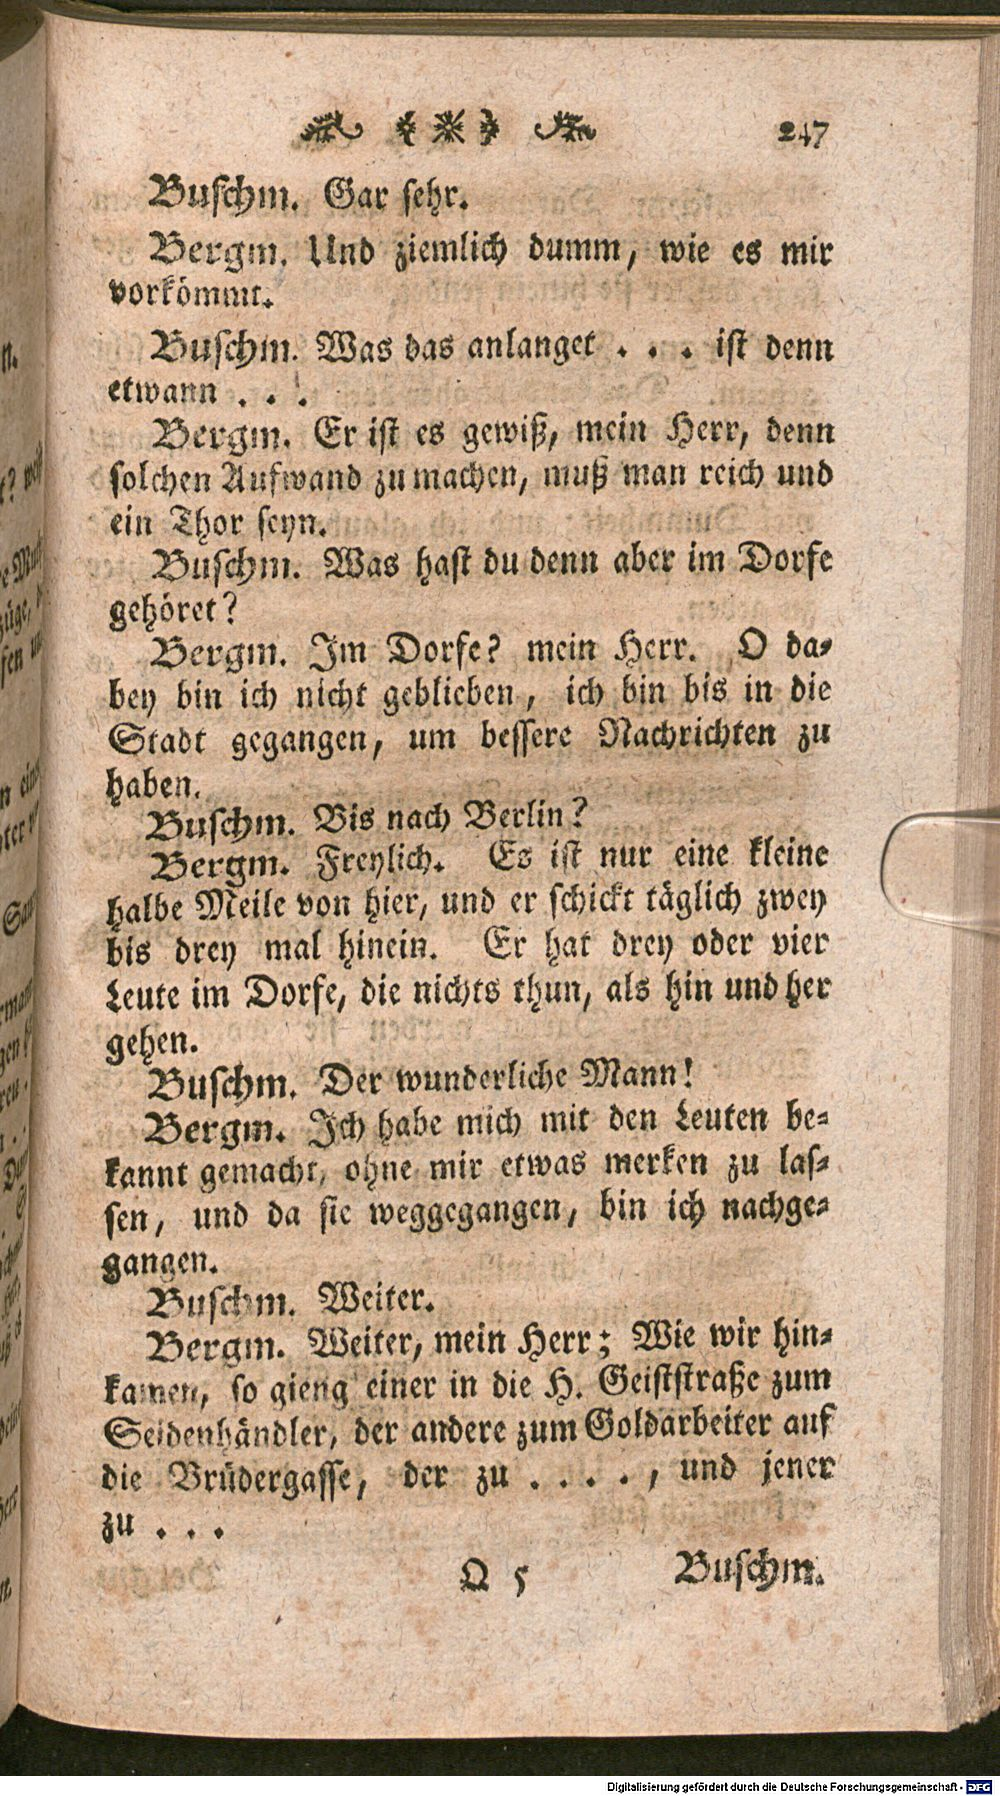 247
Buschm. Gar sehr.
Bergm. Und ziemlich dumm, wie es mir
vorkömmt.
Buschm. Was das anlanget . . . ist denn
etwann . . .
Bergm. Er ist es gewiß, mein Herr, denn
solchen Aufwand zu machen, muß man reich und
ein Thor seyn.
Buschm. Was hast du denn aber im Dorfe
gehöret?
Bergm. Im Dorfe? mein Herr. O da-
bey bin ich nicht geblieben, ich bin bis in die
Stadt gegangen, um bessere Nachrichten zu
haben.
Buschm. Bis nach Berlin?
Bergm. Freylich. Es ist nur eine kleine
halbe Meile von hier, und er schickt täglich zwey
bis drey mal hinein. Er hat drey oder vier
Leute im Dorfe, die nichts thun, als hin und her
gehen.
Buschm. Der wunderliche Mann!
Bergm. Ich habe mich mit den Leuten be-
kannt gemacht, ohne mir etwas merken zu las-
sen, und da sie weggegangen, bin ich nachge-
gangen.
Buschm. Weiter.
Bergm. Weiter, mein Herr; Wie wir hin-
kamen, so gieng einer in die H. Geiststraße zum
Seidenhändler, der andere zum Goldarbeiter auf
die Brüdergasse, der zu . . . . , und jener
zu . . .
Q 5 Buschm.
Digitalisierung gefördert durch die Deutsche Forschungsgemeinschaft - DFG